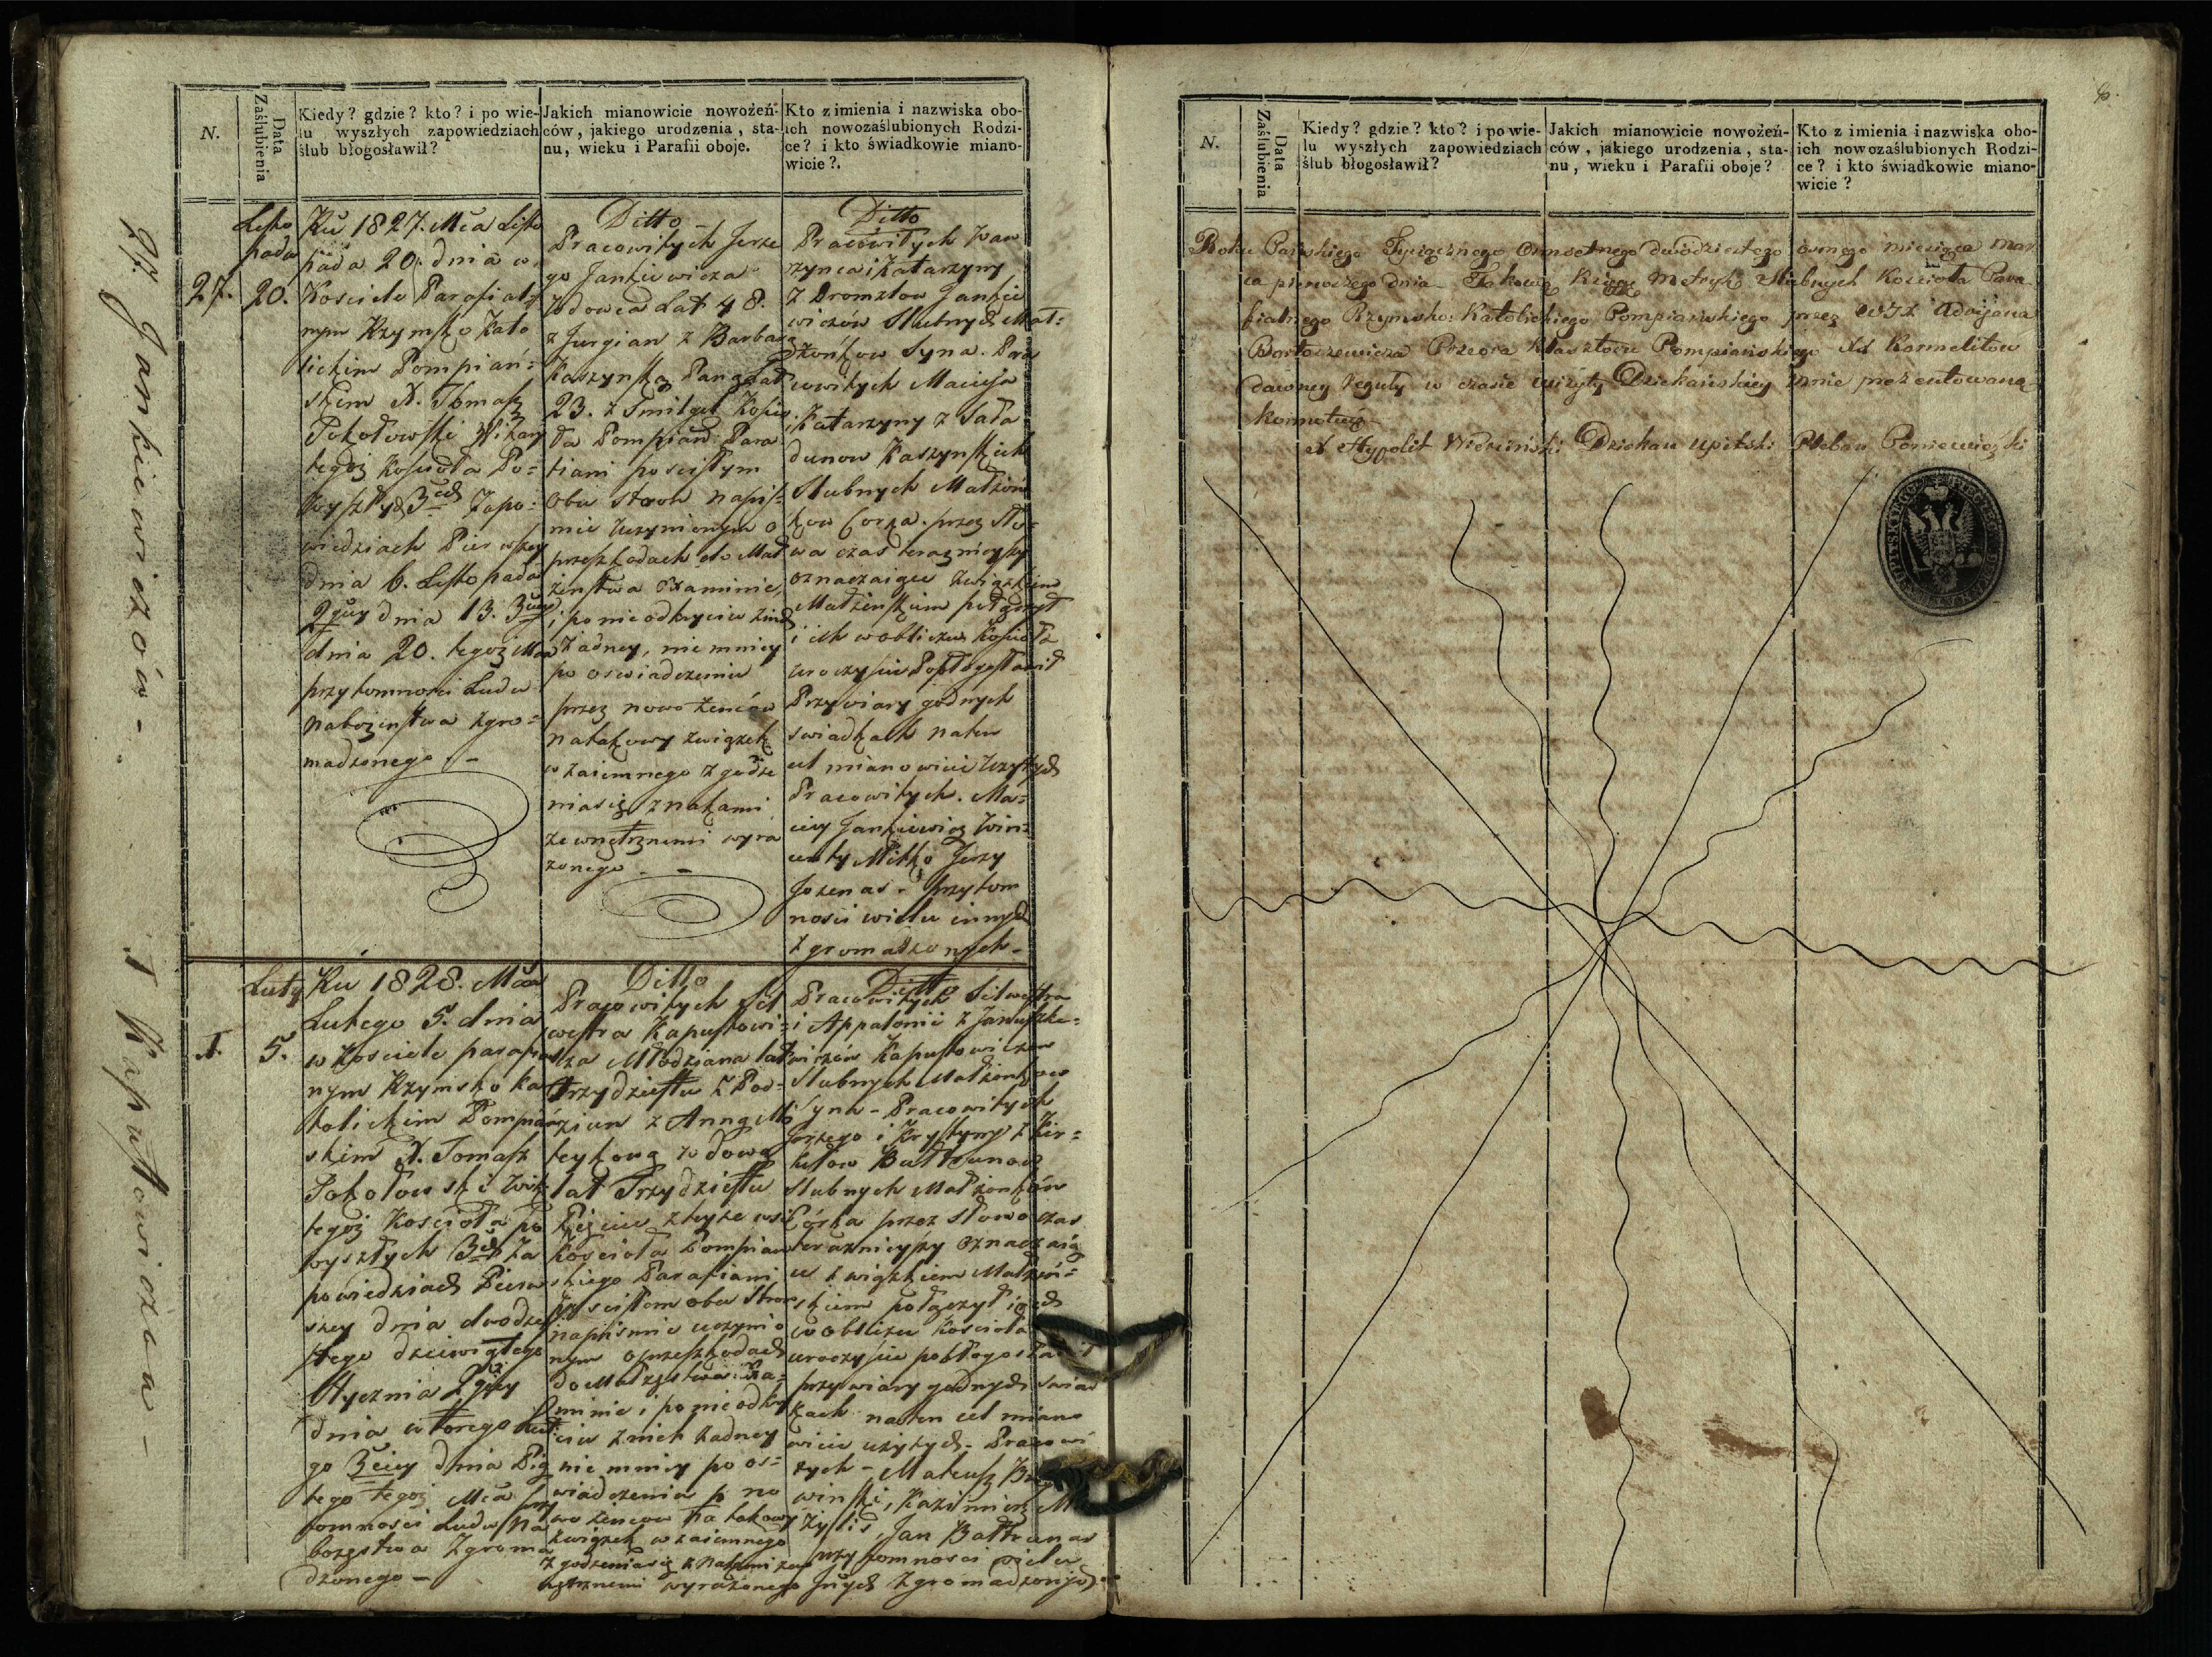 N.
Data Zaślubienia
Kiedy? gdzie? kto? i po wie-
lu wyszłych zapowiedziach
ślub błogosławił?
Jakich mianowicie nowożeń-
ców, jakiego urodzenia, sta-
nu, wieku i Parafii oboje.
Kto z imienia i nazwiska obo-
ich nowozaślubionych Rodzi-
ce? i kto świadkowie miano-
wicie?
27. Jankiewiczów -
Listo
pada
27. 20.
Ru 1827. Mca Listo
pada 20. dnia w
Kosciele Parafial
nym Rzymsko Kato
lickim Pompiań=
skim X. Tomasz
Sokołowski Wikary
tegoż Kościoła Po=
wyszłych 3ech Zapo=
wiedziach Pierwszey
dnia 6. Listopada
2giey dnia 13. 3ciey
dnia 20. tegoż Mca
przytomności Ludu
nabożeństwa zgro=
madzonego. -
Ditto -
Pracowitych Jerze
go Jankiewicza
Wdowca Lat 48.
z Jurgian z Barbarą
Kaszyńską Panną Lat
23. z Smilgel Kościo
ła Pompiań: Para
fiani po scisłym
obu stron napiś=
mie uczynionym o
przeszkodach do Mał
żeństwa Examinie,
i po nieodkryciu żad
żadney, nie mniey
po oswiadczeniu
przez nowożeńców
na takowy związek
wzaiemnego zgodze
nia się znakami
zewnętrznemi wyra
żonego - -
Ditto
Pracowitych Waw
rzynca i Katarzyny
z Dromztow Jankie
wiczów Slubnych Mał=
żonkow Syna. Pra
cowitych Macieja
i Katarzyny z Sała
dunow Kaszynskich
Slubnych Małżon
kow Corka. przez sło=
wa czas teraznieyszy
oznaczaiące związkiem
Małżenskim połączył
i ich w obliczu Kościoła
uroczyscie Pobłogosławił
Przy wiary godnych
swiadkach na ten
cel mianowicie użytych
Pracowitych. Ma=
ciey Jankiewicz Win=
centy Mitko Jerzy
Jozenas - przytom
nosci wielu innych
zgromadzonych -
1 Kapustowiczen -
Luty
1. 5.
Ru 1828. Mca
Lutego 5. dnia
w Kosciele parafial
nym Rzymsko ka
tolickim Pompiań
skim X. Tomasz
Sokołowski Wik:
tegoż Kościoła po
wyszłych 3ech Za
powiedziach Pierw
szey dnia dwudzie
stego dziewiątego
Stycznia 2giey
dnia wtorego Lute
go 3ciey dnia Pią
tego tegoż Mca przy
tomnosci Ludu Na
bożestwa Zgroma
dzonego -
Ditto
Pracowitych Sil
westra Kapustowi=
cza Młodziana lat
trzydziestu z Pod=
ziun z Anną Ma
teykową wdową
lat Trzydziestu
Pięciu z teyże wsi
Kościoła Pompiań
skiego Parafiani
po scisłem obu Stron
napismie uczynio
nym o przeszkodach
do Małżęstwa Exa=
minie i po nieodkry
ciu z nich żadney
nie mniey po os=
wiadczenia p. no
wożencow na takowy
związek wzaiemnego
zgodzenia się znakami zew
nętrznemi wyrażonego
Ditto
Pracowitych Silwestra
i Appalonii z Januszkie=
wiczów Kapustowiczow
Slubnych Małżonkow
Syna - Pracowitych
Jerzego i Krystyny z Kir=
kiłow Bałtrunow
Slubnych Małżonków
Córka przez słowo czas
teraznieyszy oznaczaią
ce związkiem Małżeń=
skiem połączył i ich
w obliczu Kościoła
uroczyscie pobłogosławił
przy wiary godnych swiad
kach na ten cel miano
wicie użytych - Pracowi
tych - Mateusz
winski, Kazimierz
żylis, Jan Bałtrunas
przytomnosci wielu
Jnnych Zgromadzonych -
N.
Data Zaślubienia
Kiedy? gdzie? kto? i po wie-
lu wyszłych zapowiedziach
ślub błogosławił?
Jakich mianowicie nowożeń-
ców, jakiego urodzenia, sta-
nu, wieku i Parafii oboje?
Kto z imienia i nazwiska obo-
ich nowozaślubionych Rodzi-
ce? i kto świadkowie miano-
wicie?
Roku Pańskiego Tysiącznego Ośmsetnego dwódziestego ósmego miesiąca mar
ca pierwszego dnia Takową Księgę Metryk Slubnych Kościoła Para
fialnego Rzymsko: Katolickiego Pompiańskiego przez WJX Adryjana
Bortoszewicza Przeora Klasztoru Pompiańskiego XX Karmelitow
dawney reguły w czasie wizyty Dziekańskiey mnie prezentowaną
konnotuię
X Hypolit Dziekan Upitski Pleban Poniewiezki